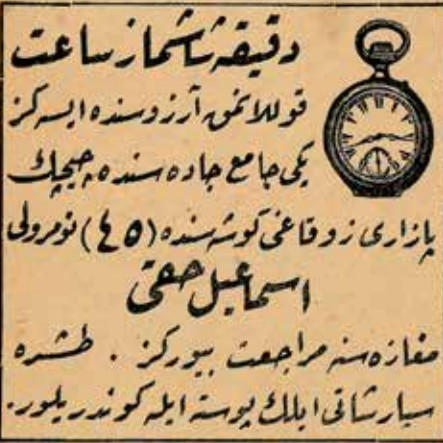 دقیقه شاشماز ساعت
قوللانمق آرزوسنده ایسه‌کز
یکی جامع جاده سنده چیچك
پازاری زوقاغی کوشه سنده (٤٥) نومرولی
اسماعیل حقی
مغازه سنه مراجعت بیورکز . طشره
سپارشاتی ایلك پوسته ایله کوندریلور.